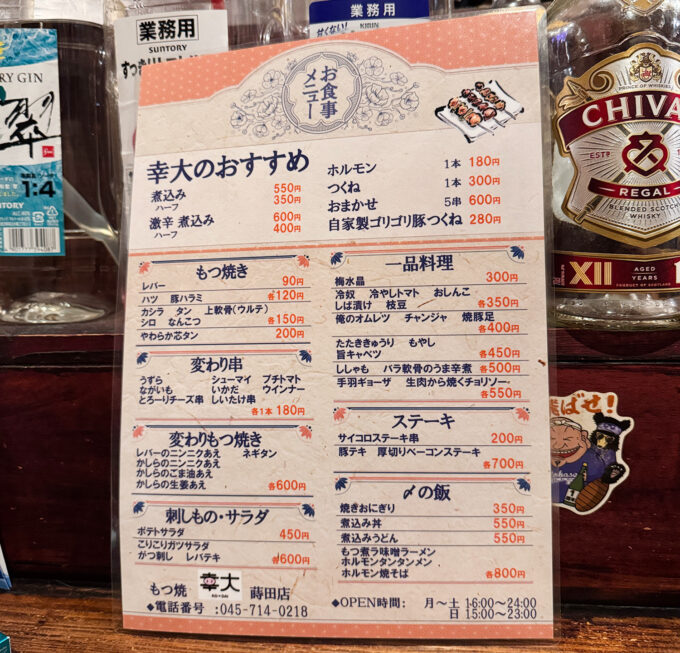 業務用
SUNTORY
業務用
KIRIN
RY GIN
翠
1:4
SUNTORY
PRINCE OF WHISKIES
CHIVA
ESTD
REGAL
BLENDED SCOTCH
WHISKY
XII
AGED
YEARS
PRODUCT OF SCOTLAND
お食事
メニュー
幸大のおすすめ
煮込み 550円
ハーフ 350円
激辛 煮込み 600円
ハーフ 400円
ホルモン 1本 180円
つくね 1本 300円
おまかせ 5串 600円
自家製ゴリゴリ豚つくね 280円
もつ焼き
レバー 90円
ハツ 豚ハラミ 各120円
カシラ タン 上軟骨(ウルテ)
シロ なんこつ 各150円
やわらか芯タン 200円
変わり串
うずら シューマイ プチトマト
ながいも いかだ ウインナー
とろーりチーズ串 しいたけ串
各1本 180円
変わりもつ焼き
レバーのニンニクあえ ネギタン
かしらのニンニクあえ
かしらのごま油あえ
かしらの生姜あえ 各600円
刺しもの・サラダ
ポテトサラダ 450円
こりこりガツサラダ
がつ刺し レバテキ 各600円
一品料理
梅水晶 300円
冷奴 冷やしトマト おしんこ
しば漬け 枝豆 各350円
俺のオムレツ チャンジャ 焼豚足
各400円
たたききゅうり もやし
旨キャベツ 各450円
ししゃも バラ軟骨のうま辛煮 各500円
手羽ギョーザ 生肉から焼くチョリソー
各550円
ステーキ
サイコロステーキ串 200円
豚テキ 厚切りベーコンステーキ
各700円
〆の飯
焼きおにぎり 350円
煮込み丼 550円
煮込みうどん 550円
もつ煮ラ味噌ラーメン
ホルモンタンタンメン
ホルモン焼そば 各800円
もつ焼 幸大 蒔田店
◆電話番号 :045-714-0218
◆OPEN時間: 月〜土 16:00〜24:00
日 15:00〜23:00
ばせ!